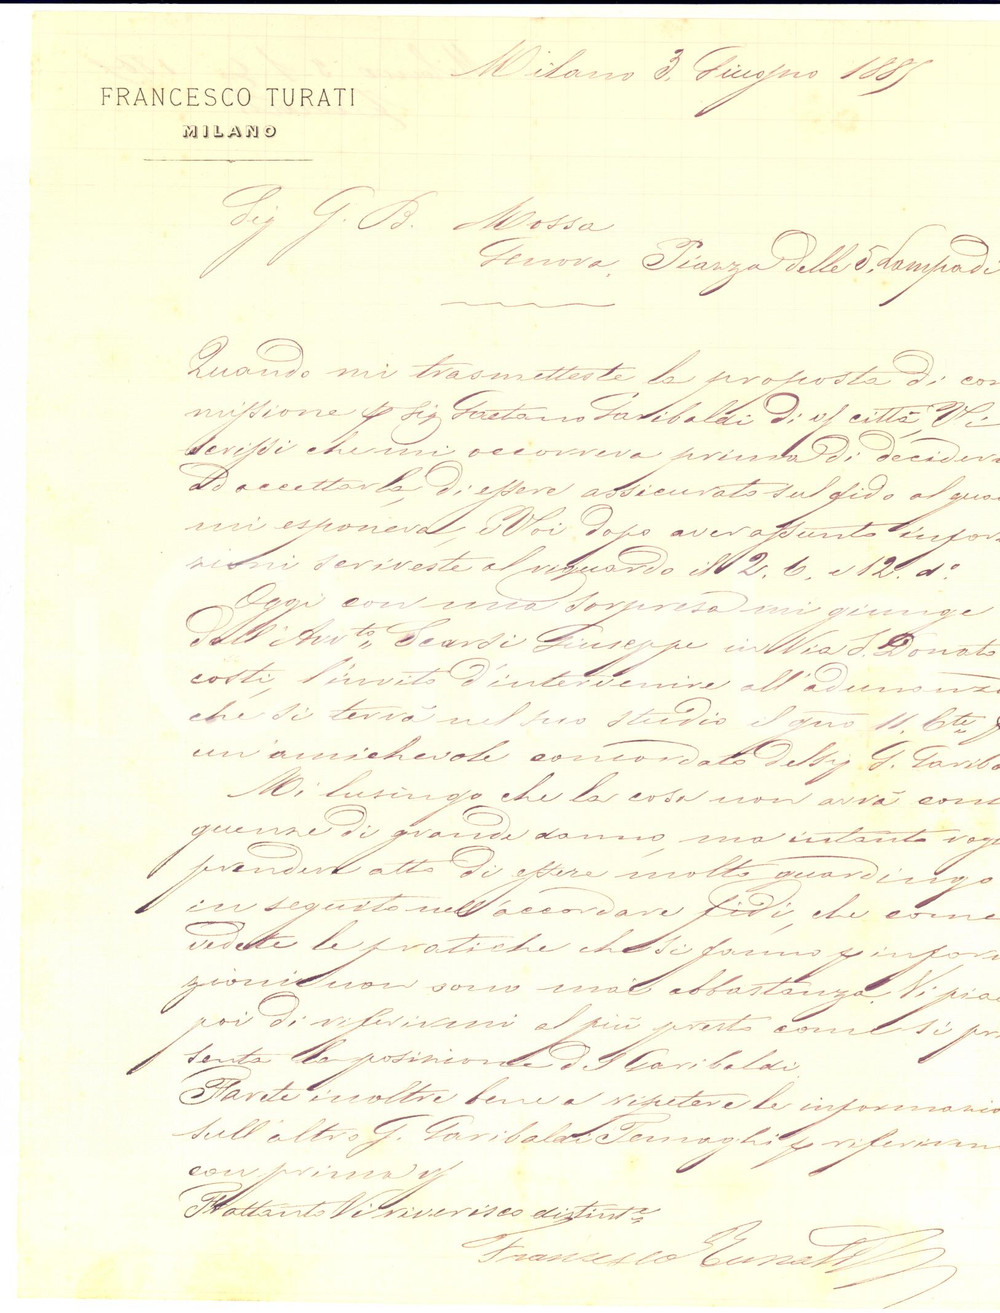 Milano 3. Giugno 1885
FRANCESCO TURATI
MILANO
Sig G. B. Mossa
Genova, Piazza delle 5. Lampadi
Quando mi trasmetteste la proposta di com
missione p Sig Gaetano Garibaldi di vs città, Vi
scrissi che mi occorreva prima di decidere
ad accettarla, di essere assicurato sul fido al qua
mi esponeva, e Voi dopo aver assunto infor
zioni scriveste al riguardo il 2. 6. e 12. do.
Oggi con mia sorpresa mi giunge
dall'Avvto. Scarsi Giuseppe in Via S. Donato
costì, l'invito d'intervenire all'adunanza
che si terrà nel suo studio il gno 11. Cte.
un'amichevole concordato del Sig G. Gariba
Mi lusingo che la cosa non avrà cons
guenze di grande danno, ma intanto vog
prendere atto di essere molto guardingo
in seguito nell'accordare fidi, che come
vedete le pratiche che si fanno p infor
zioni non sono mai abbastanza. Vi piac
poi di riferirmi al più presto come si pr
senta la posizione del Garibaldi.
Farete inoltre bene a ripetere le informazio
sull'altro G. Garibaldi p riferirm
con prima vs
Frattanto Vi riverisco distinte.
Francesco Turati